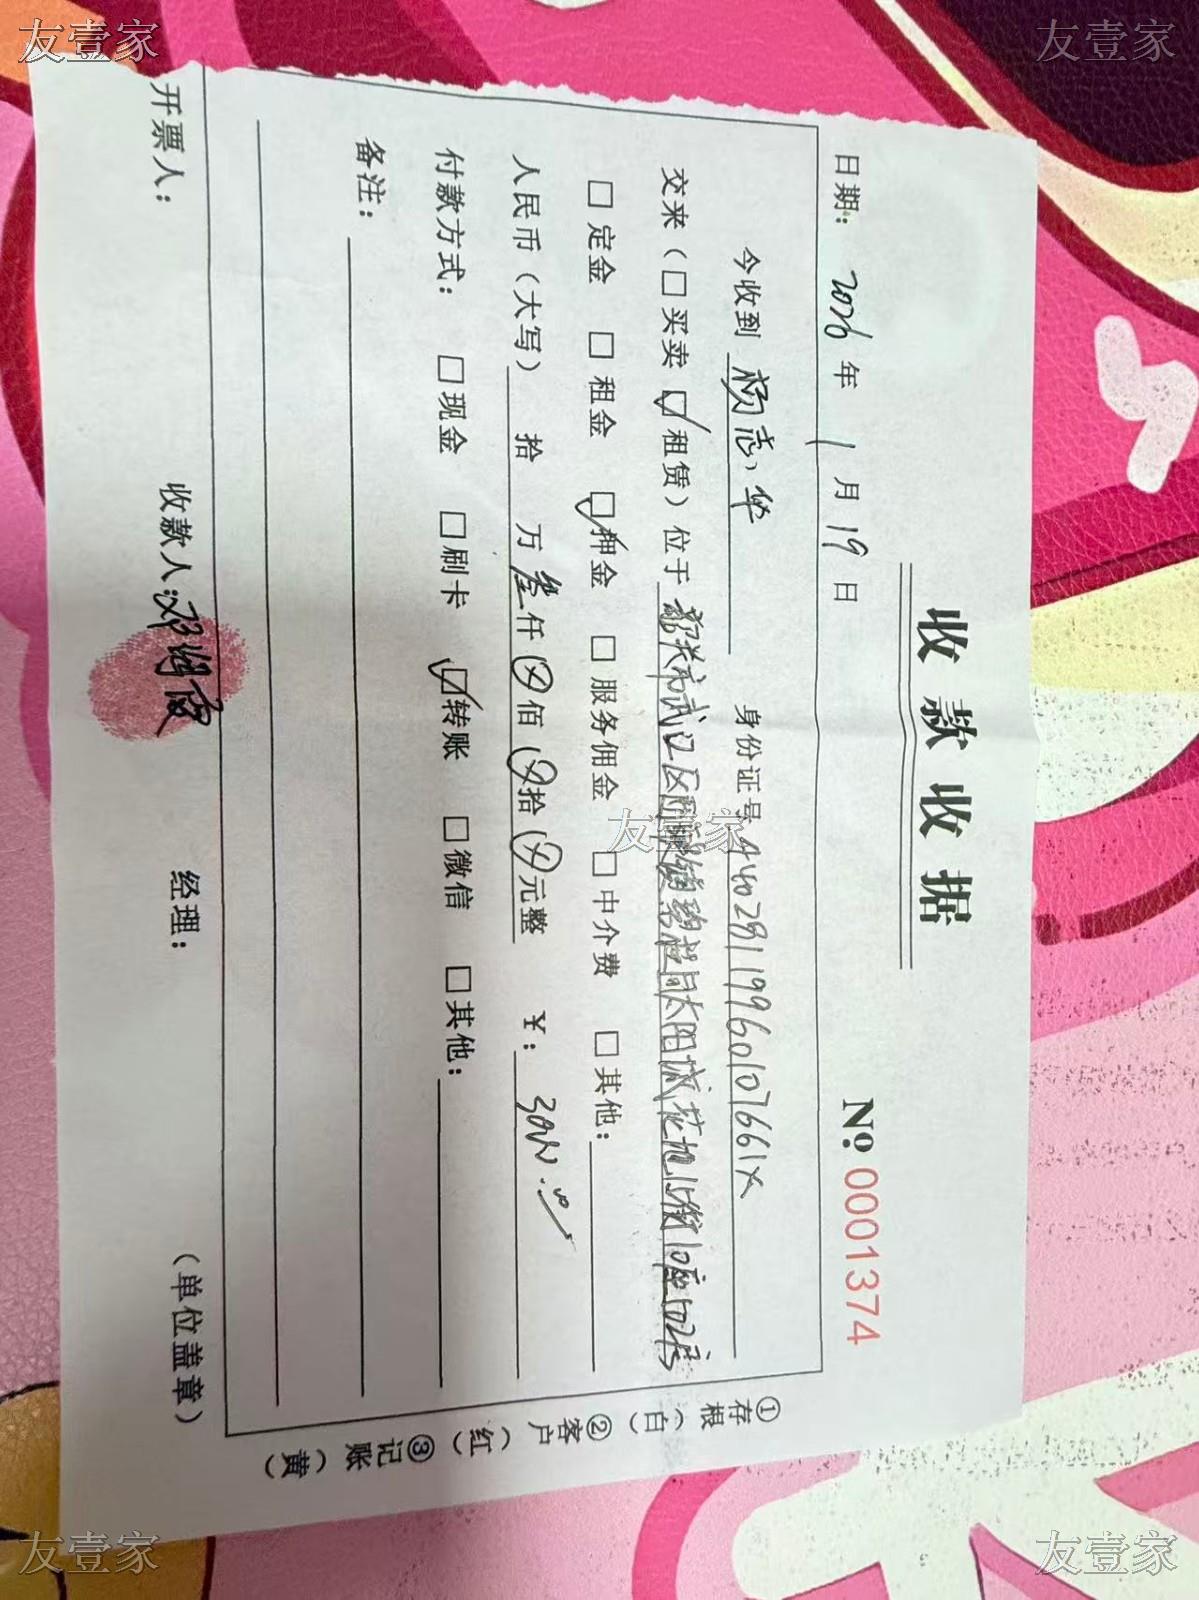 友壹家
友壹家
收款收据
№ 0001374
日期: 2026 年 1 月 19 日
今收到 杨志华 身份证号 44028119960107661X
交来（□买卖 ☑租赁）位于 韶关市武江区 碧桂园太阳城花地15街10座102房
□定金 □租金 ☑押金 □服务佣金 □中介费 □其他:
人民币（大写） 拾 万 叁仟 ⊗佰 ⊗拾 ⊗元整 ¥: 3000.00
付款方式: □现金 □刷卡 ☑转账 □微信 □其他:
备注:
开票人: 收款人: 邓 经理: （单位盖章）
①存根（白）②客户（红）③记账（黄）
友壹家
友壹家
友壹家